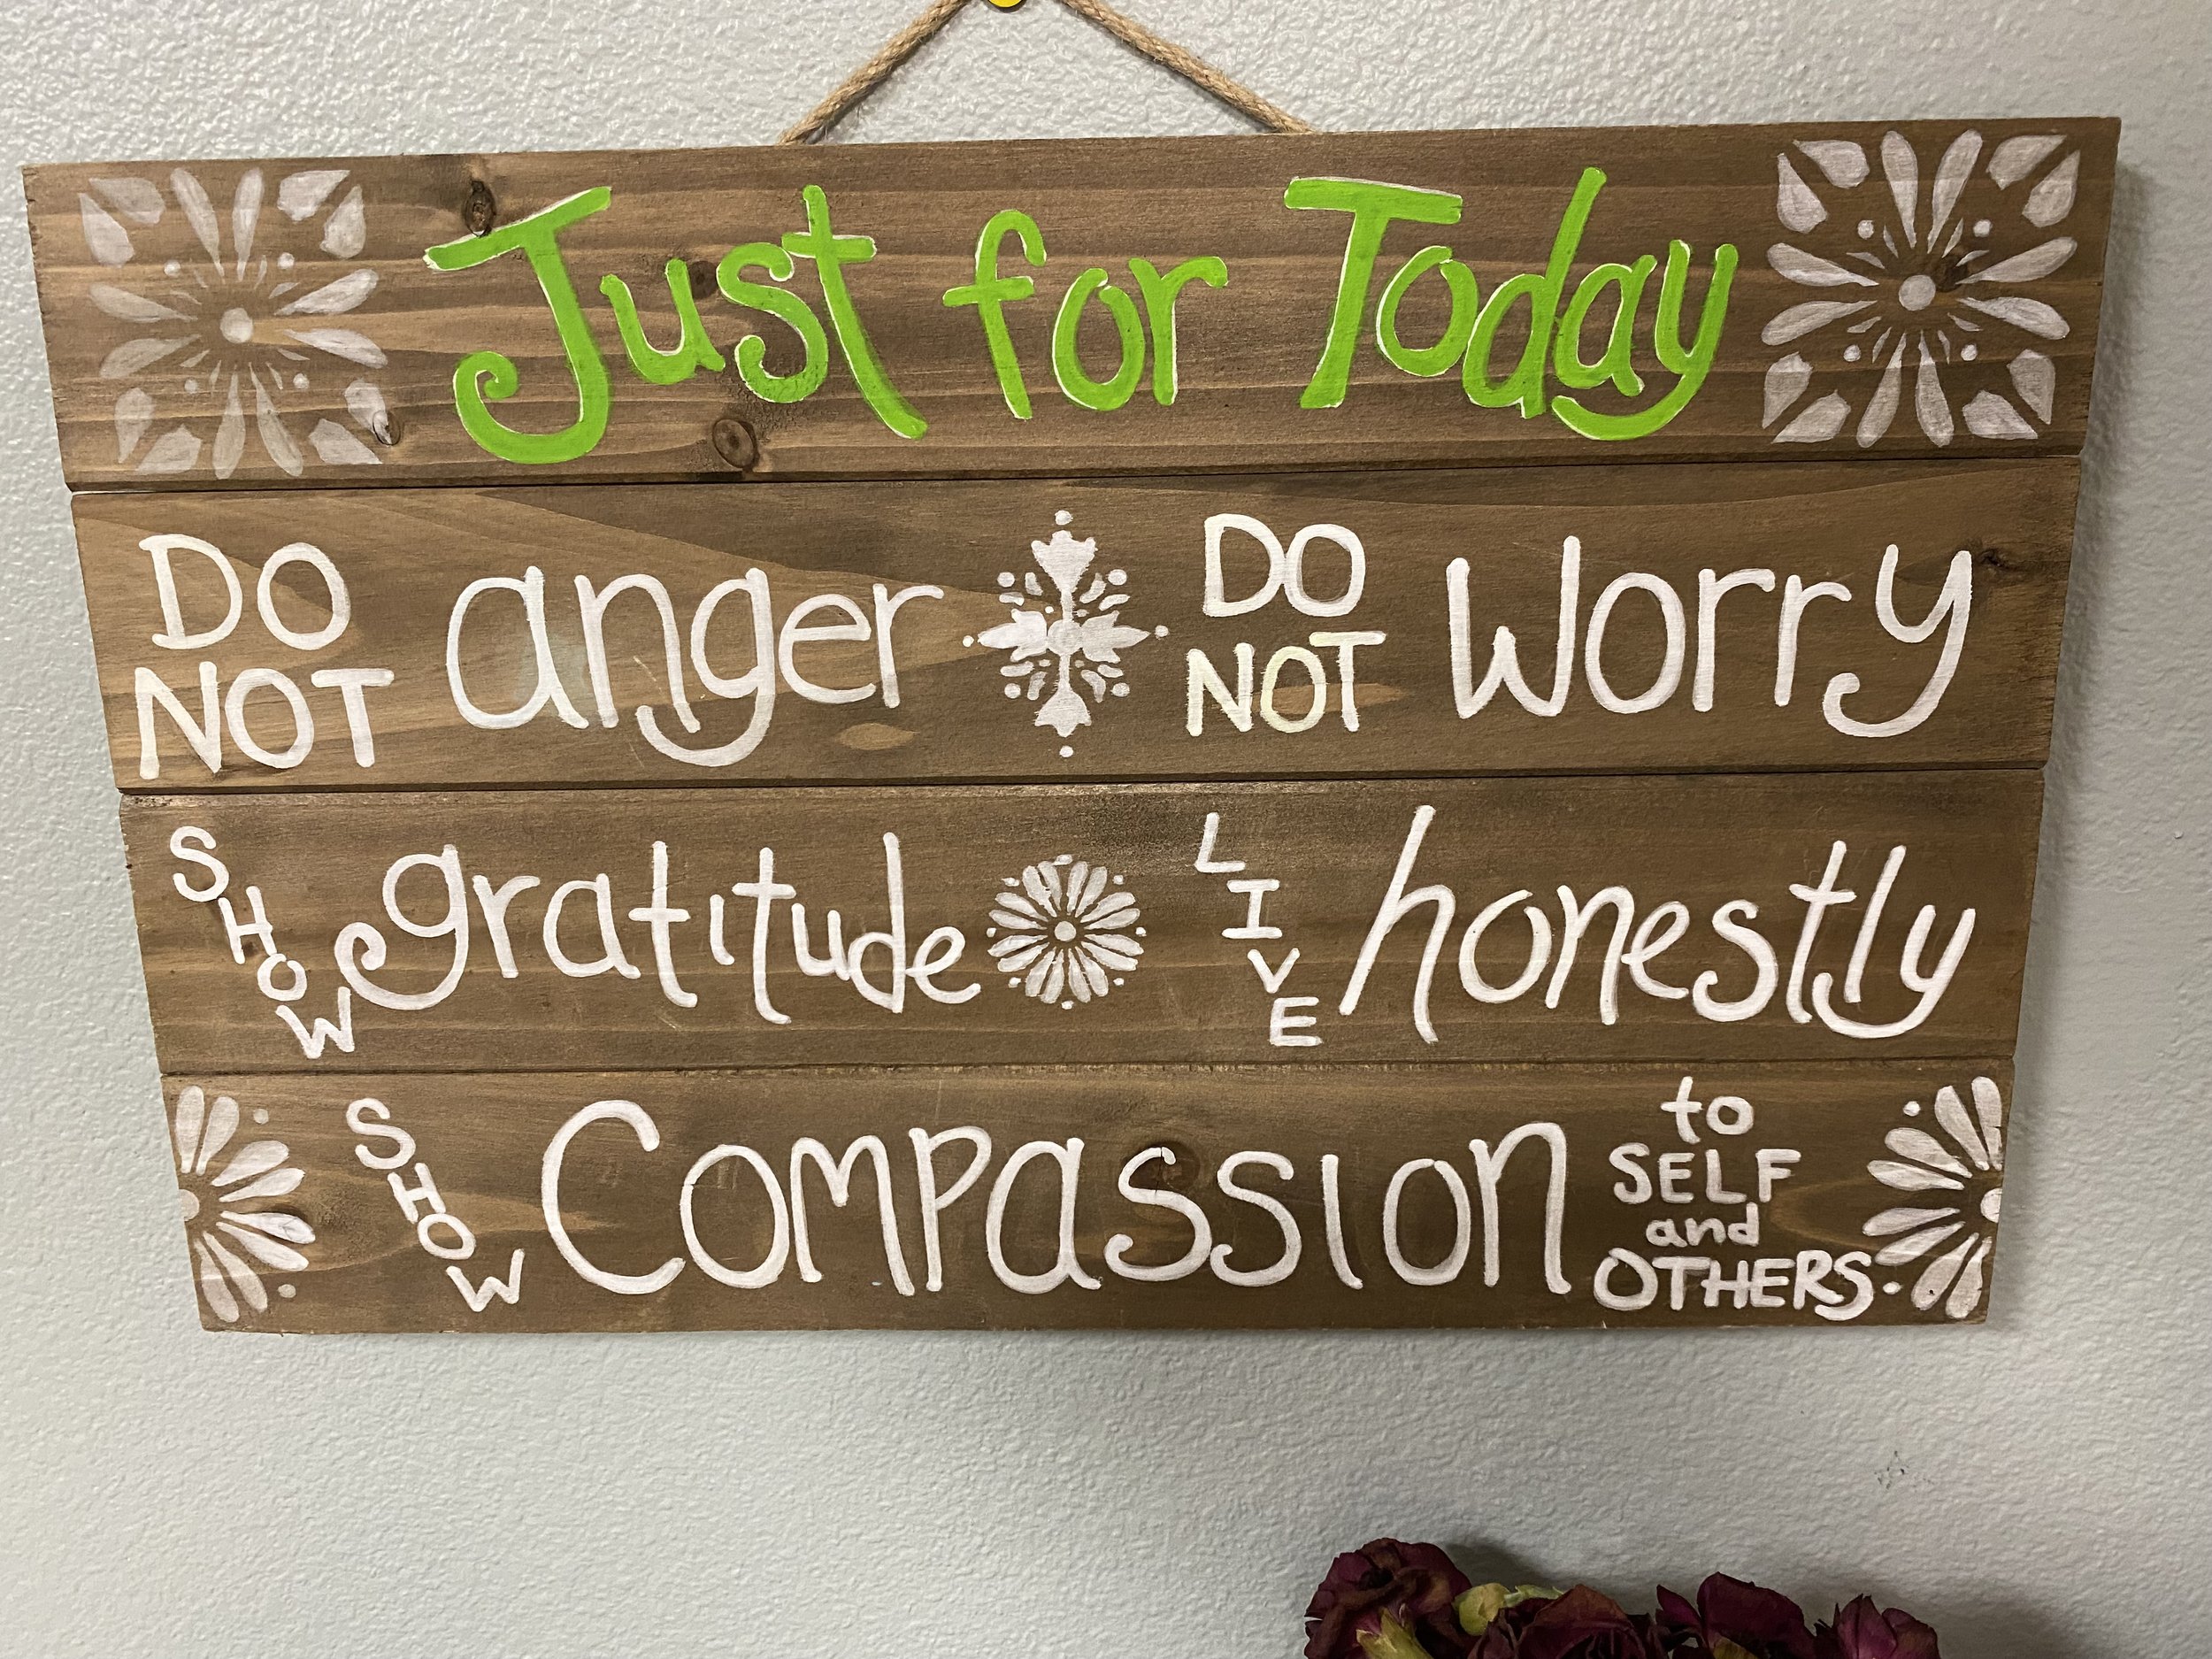 Just for Today
DO NOT anger DO NOT worry
SHOW gratitude LIVE honestly
SHOW Compassion to SELF and OTHERS